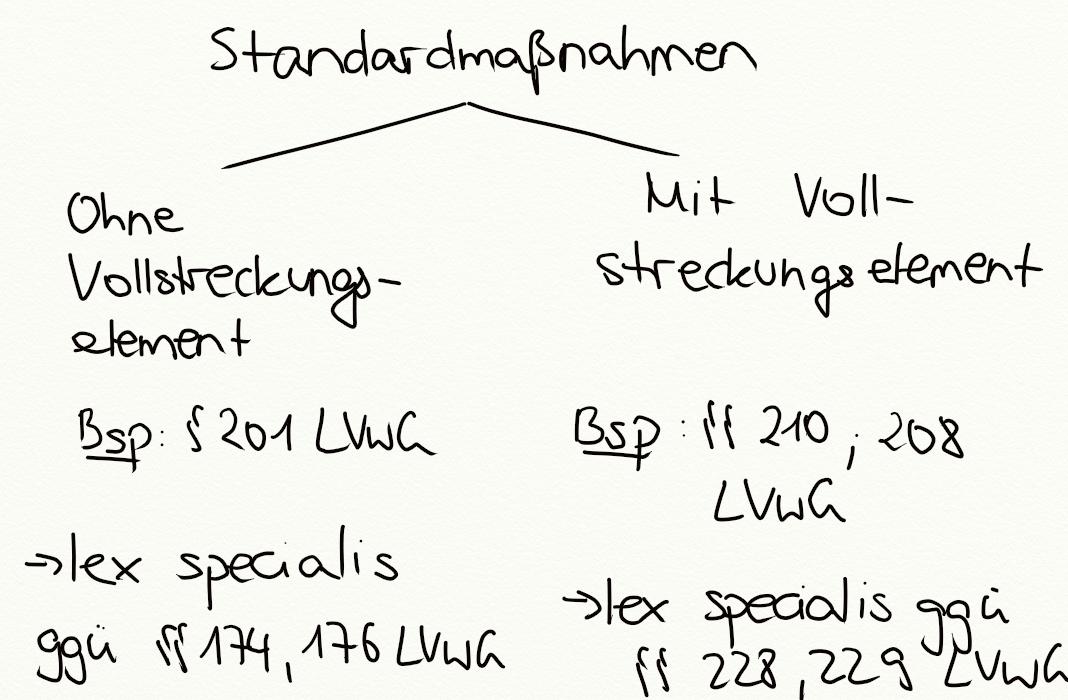 Standardmaßnahmen
Ohne
Vollstreckungs-
element
Bsp: § 201 LVwG
→lex specialis
ggü §§ 174, 176 LVwG
Mit Voll-
streckungselement
Bsp: §§ 210, 208
LVwG
→lex specialis ggü
§§ 228, 229 LVwG